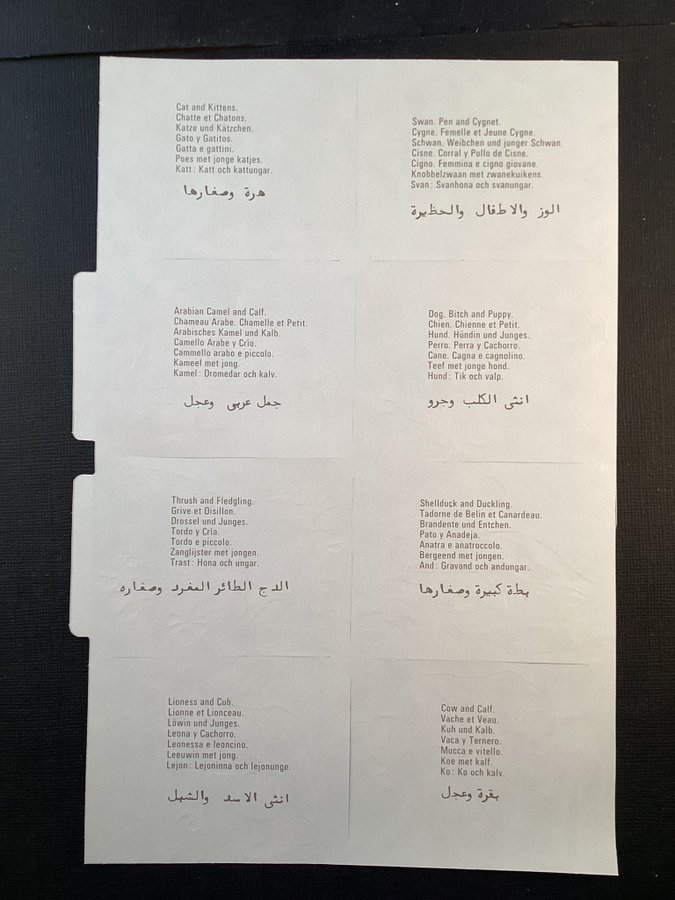 Cat and Kittens.
Chatte et Chatons.
Katze und Kätzchen.
Gato y Gatitos.
Gatta e gattini.
Poes met jonge katjes.
Katt: Katt och kattungar.
هرة وصغارها
Swan. Pen and Cygnet.
Cygne. Femelle et Jeune Cygne.
Schwan. Weibchen und junger Schwan.
Cisne. Corral y Pollo de Cisne.
Cigno. Femmina e cigno giovane.
Knobbelzwaan met zwanekuikens.
Svan: Svanhona och svanungar.
الوز والاطفال والحظيرة
Arabian Camel and Calf.
Chameau Arabe. Chamelle et Petit.
Arabisches Kamel und Kalb.
Camello Arabe y Crío.
Cammello arabo e piccolo.
Kameel met jong.
Kamel: Dromedar och kalv.
جمل عربى وعجل
Dog. Bitch and Puppy.
Chien. Chienne et Petit.
Hund. Hündin und Junges.
Perro. Perra y Cachorro.
Cane. Cagna e cagnolino.
Teef met jonge hond.
Hund: Tik och valp.
انثى الكلب وجرو
Thrush and Fledgling.
Grive et Oisillon.
Drossel und Junges.
Tordo y Cría.
Tordo e piccolo.
Zanglijster met jongen.
Trast: Hona och ungar.
الدج الطائر المغرد وصغاره
Shellduck and Duckling.
Tadorne de Belin et Canardeau.
Brandente und Entchen.
Pato y Anadeja.
Anatra e anatroccolo.
Bergeend met jongen.
And: Gravand och andungar.
بطة كبيرة وصغارها
Lioness and Cub.
Lionne et Lionceau.
Löwin und Junges.
Leona y Cachorro.
Leonessa e leoncino.
Leeuwin met jong.
Lejon: Lejoninna och lejonunge.
انثى الاسد والشبل
Cow and Calf.
Vache et Veau.
Kuh und Kalb.
Vaca y Ternero.
Mucca e vitello.
Koe met kalf.
Ko: Ko och kalv.
بقرة وعجل